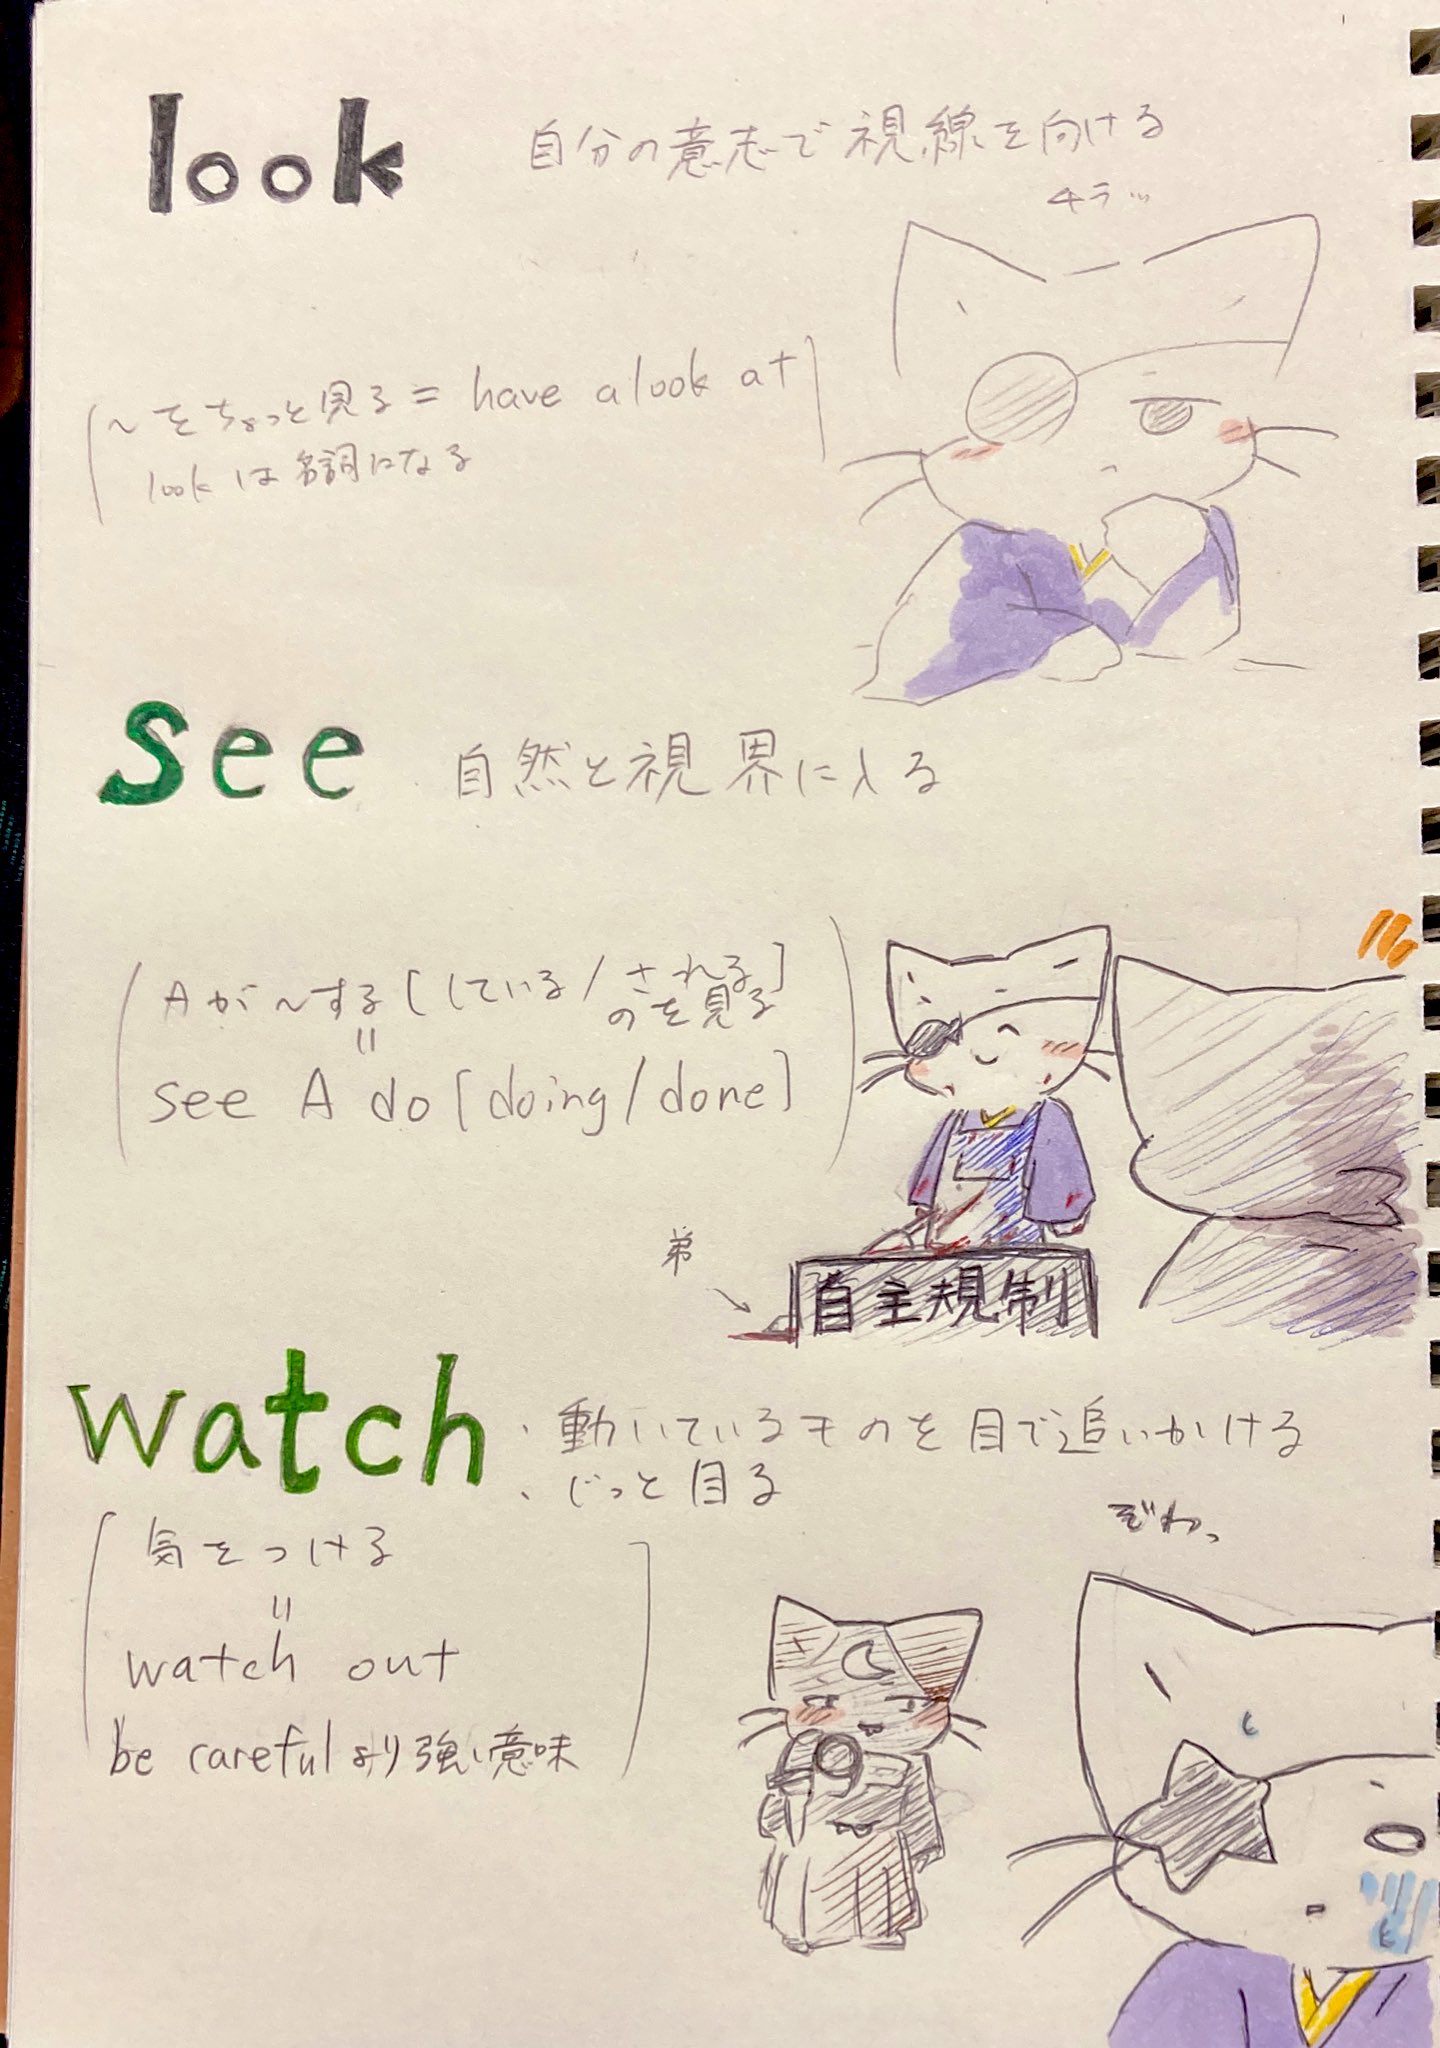 look
自分の意志で視線を向ける
チラ…
〜をちょっと見る = have a look at
look は名詞になる
see
自然と視界に入る
Aが〜する[している/される]
のを見る
=
see A do [doing/done]
弟
自主規制
watch
・動いているものを目で追いかける
・じっと目る
ぞわっ
気をつける
=
watch out
be carefulより強い意味